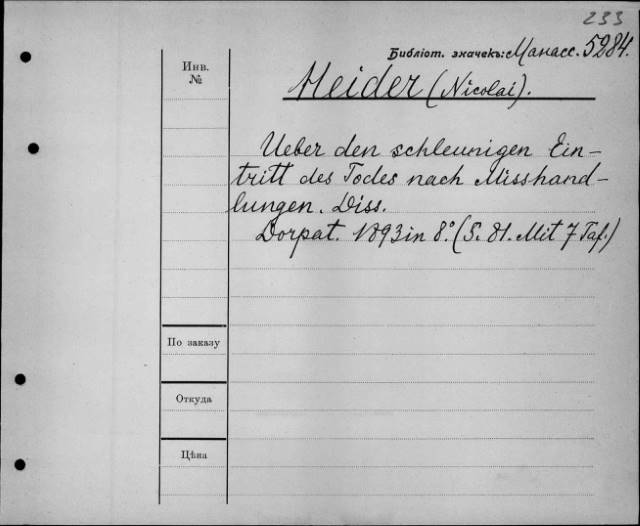 233
Библіот. значекъ: Манасс. 5284.
Инв.
№
Heider (Nicolai).
Ueber den schleunigen Ein-
tritt des Todes nach Misshand-
lungen. Diss.
Dorpat. 1893 in 8.° (S. 81. Mit 7 Taf.)
По заказу
Откуда
Цѣна